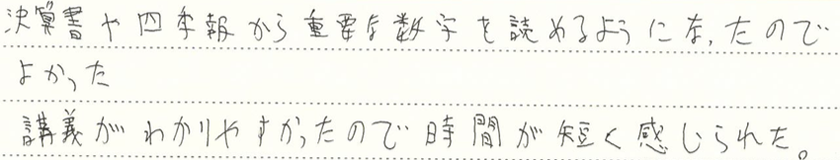 決算書や四季報から重要な数字を読めるようになったので
よかった
講義がわかりやすかったので時間が短く感じられた。